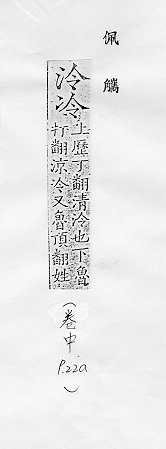 佩觿
泠冷
上歷丁翻清泠也下魯
打翻涼冷又魯頂翻姓
(卷中 P.22a)